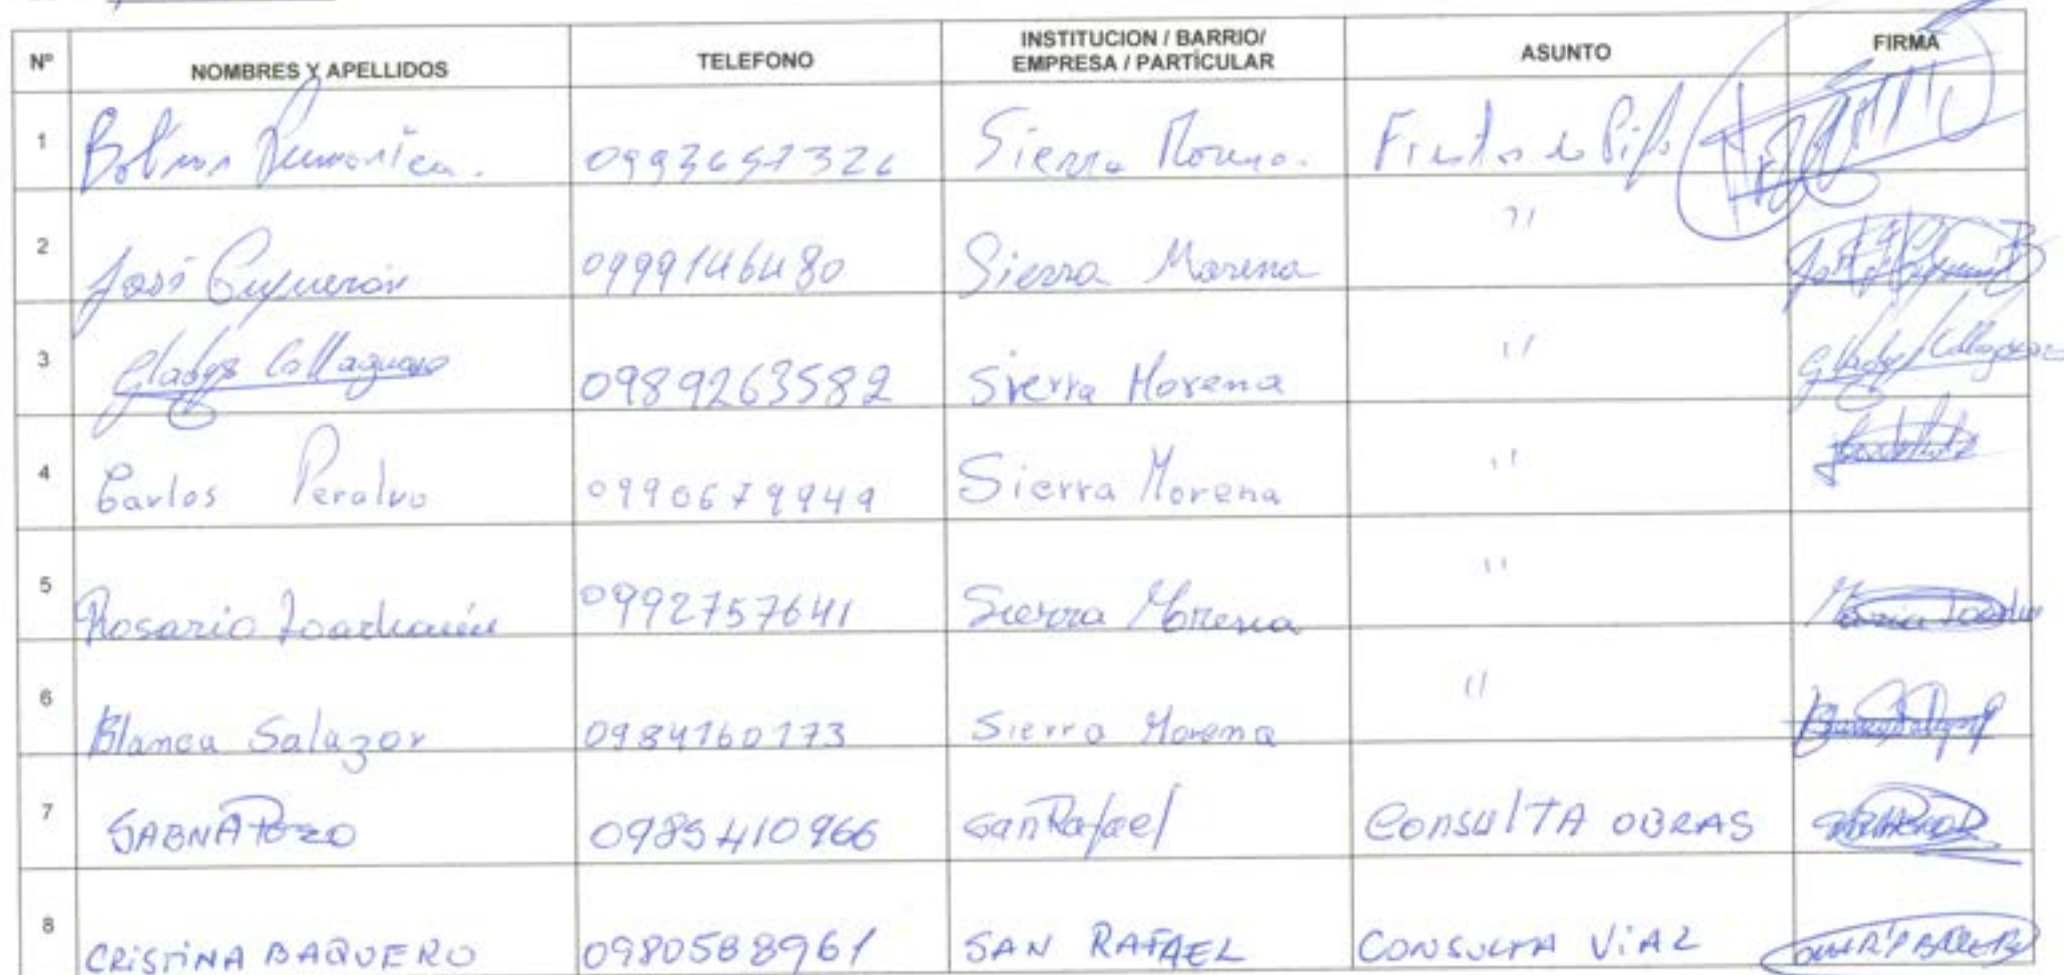 Nº NOMBRES Y APELLIDOS TELEFONO INSTITUCION / BARRIO/ EMPRESA / PARTÍCULAR ASUNTO FIRMA
1 Sierra Morena.
2 José 0999146480 Sierra Morena "
3 Gladys Collaguazo 0989263582 Sierra Morena " Gladys Collaguazo
4 Carlos Peralvo 0990679949 Sierra Morena "
5 Rosario 0992757641 Sierra Morena "
6 Blanca Salazar 0984160173 Sierra Morena "
7 0985410966 San Rafael CONSULTA OBRAS
8 CRISTINA BAQUERO 0980588961 SAN RAFAEL CONSULTA ViAL